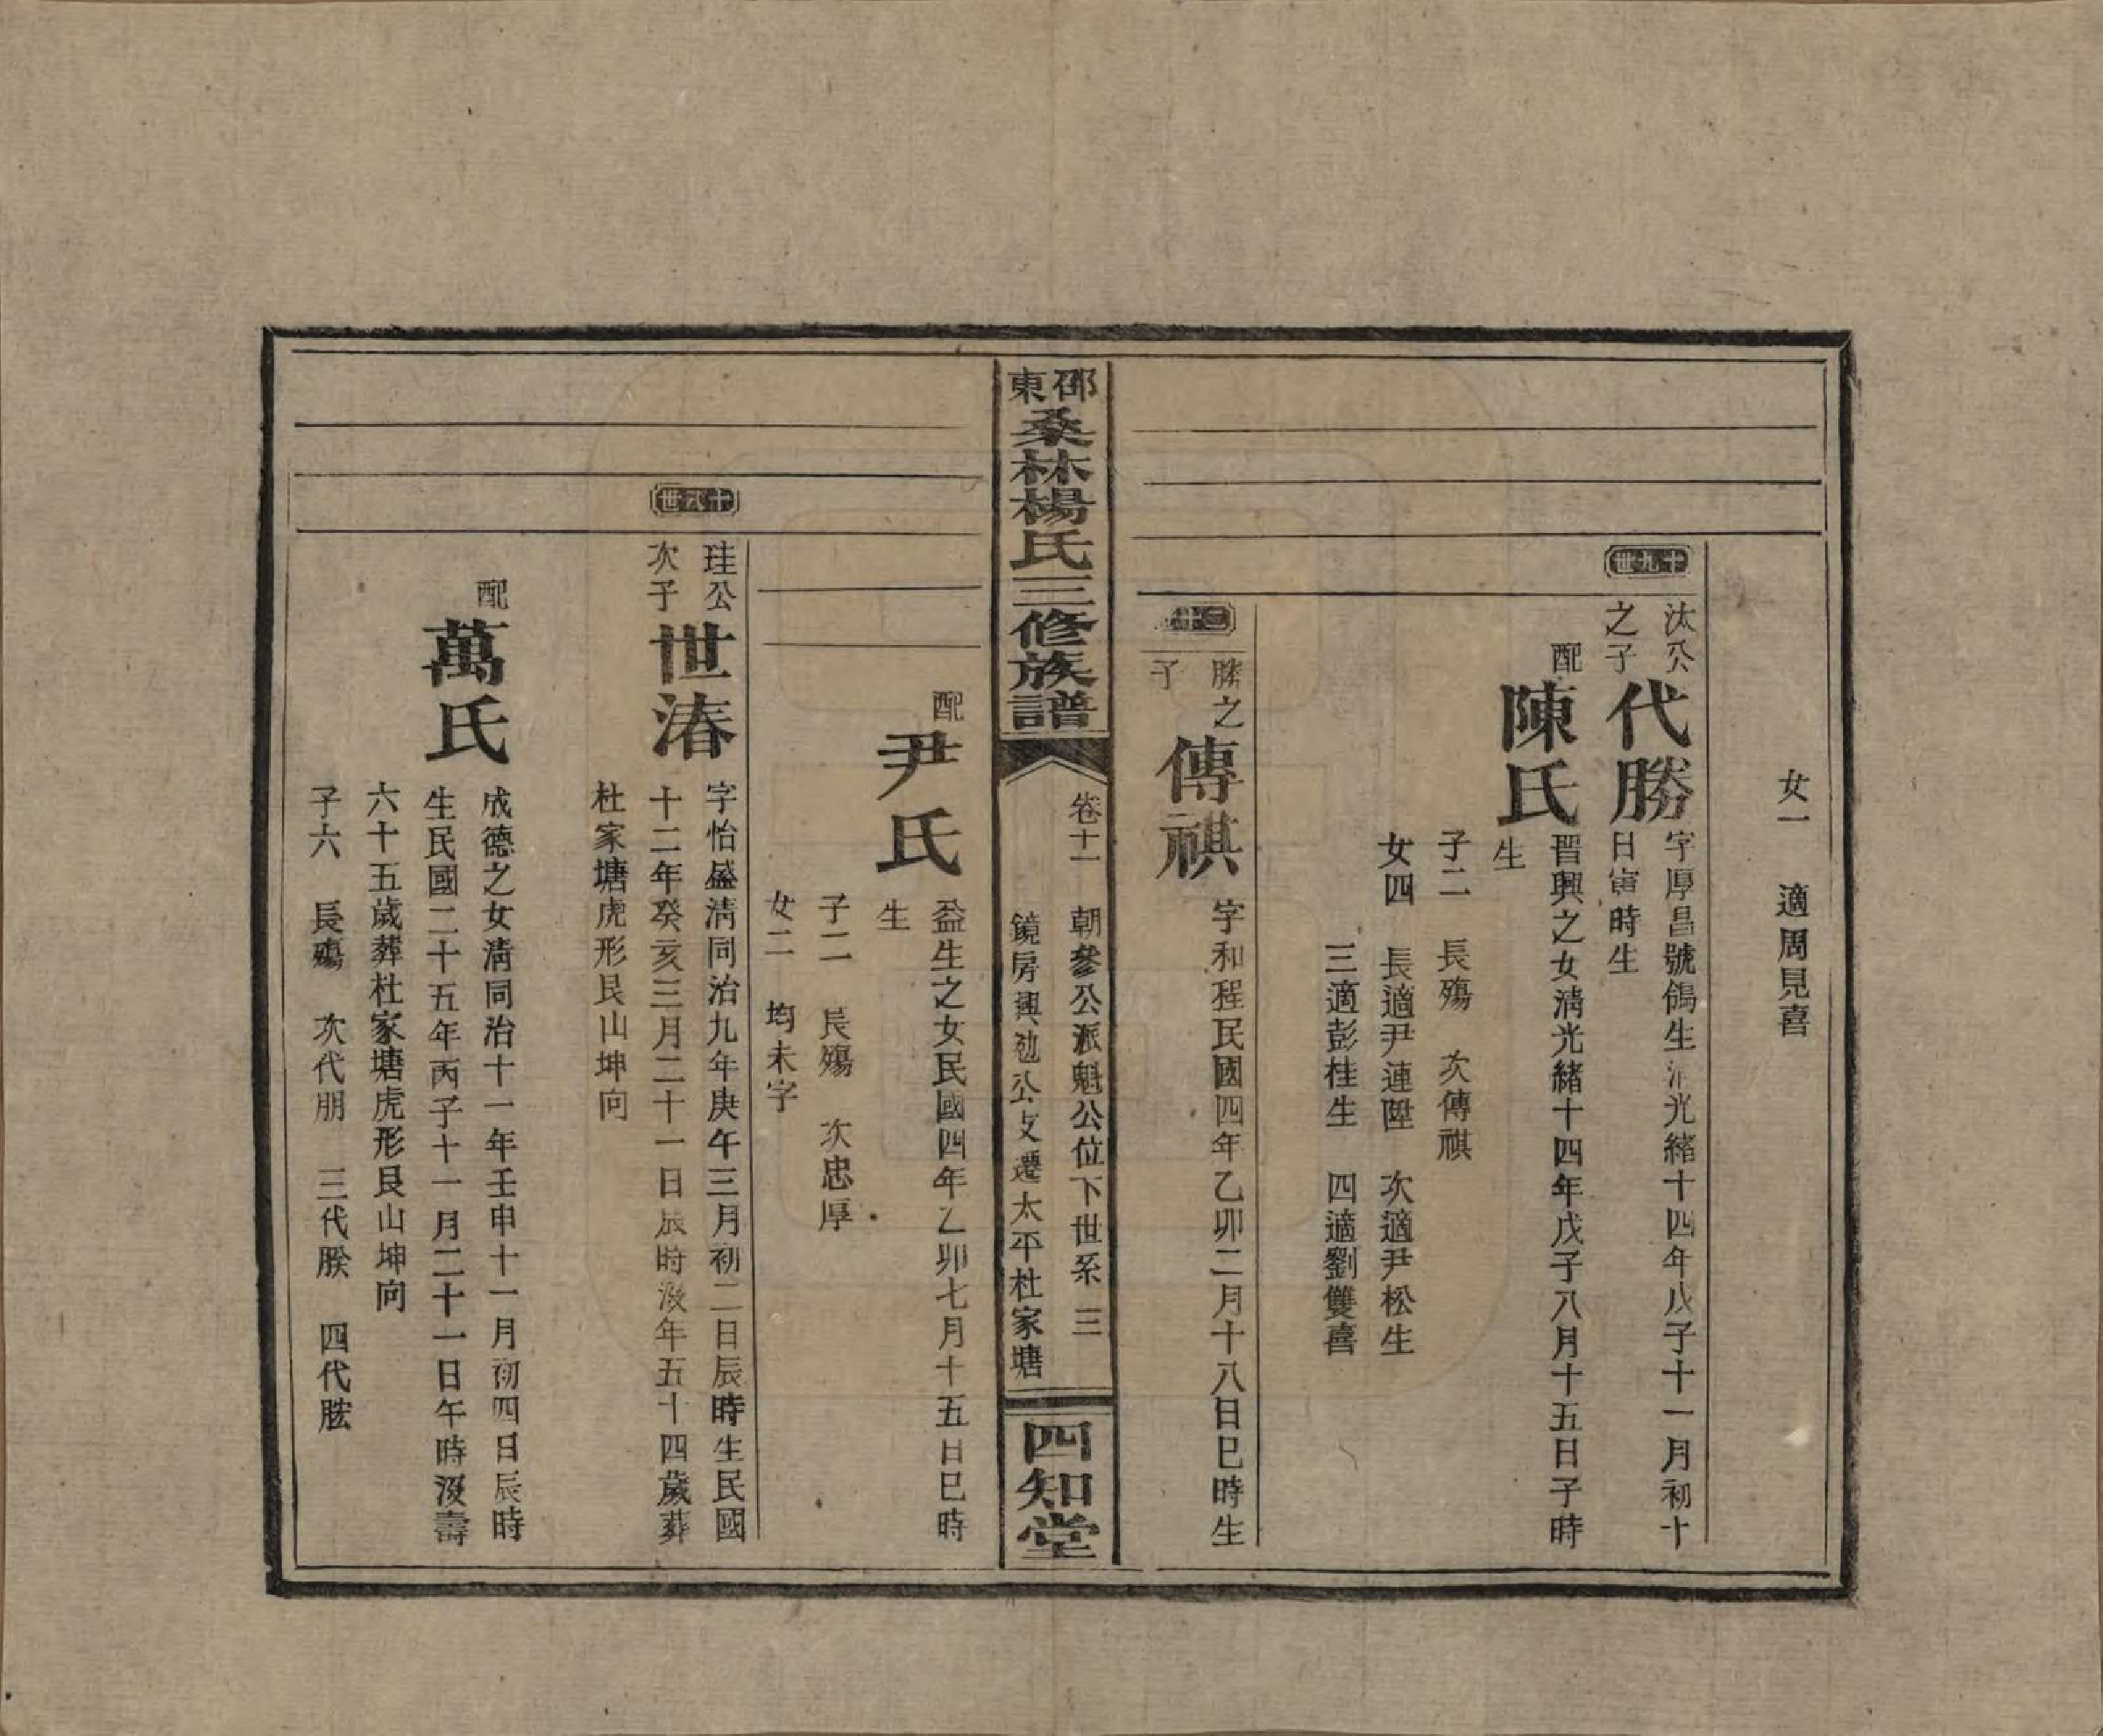 女一　適周見喜
十九世
汰公
之子
代勝
字厚昌號鴿生清光緒十四年戊子十一月初十
日寅時生
配
陳氏
晋興之女清光緒十四年戊子八月十五日子時
生
子二　長殤　次傳祺
女四　長適尹連陞　次適尹松生
三適彭桂生　四適劉雙喜
二十
勝之
子
傳祺
字和程民國四年乙卯二月十八日巳時生
邵東
桑林楊氏三修族譜
卷十一　朝參公派魁公位下世系　三
鏡房興
公支遷太平杜家塘
四知堂
配
尹氏
益生之女民國四年乙卯七月十五日巳時
生
子二　長殤　次忠厚
女二　均未字
十八世
珪公
次子
世涛
字怡盛清同治九年庚午三月初二日辰時生民國
十二年癸亥三月二十一日辰時沒年五十四歲葬
杜家塘虎形艮山坤向
配
萬氏
成德之女清同治十一年壬申十一月初四日辰時
生民國二十五年丙子十一月二十一日午時沒壽
六十五歲葬杜家塘虎形艮山坤向
子六　長殤　次代朋　三代朕　四代肱